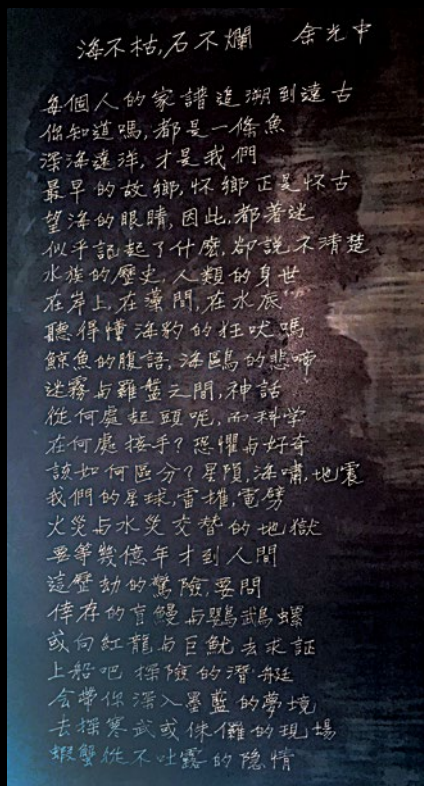 海不枯,石不爛 余光中
每個人的家譜追溯到遠古
你知道嗎,都是一條魚
深海遠洋,才是我們
最早的故鄉,怀鄉正是怀古
望海的眼睛,因此,都著迷
似乎記起了什麼,卻說不清楚
水族的歷史,人類的身世
在岸上,在藻間,在水底
聽得懂海豹的狂吠嗎
鯨魚的腹語,海鷗的悲啼
迷霧与羅盤之間,神話
從何處起頭呢,而科学
在何處接手?恐懼与好奇
該如何區分?星隕,海嘯,地震
我們的星球,雷摧,電劈
火災与水災交替的地獄
要等幾億年才到人間
這歷劫的驚險,要問
倖存的盲鰻与鸚鵡螺
或向紅龍与巨魷去求証
上船吧 探險的潛艇
会帶你深入墨藍的夢境
去探寒武或侏儸的現場
蝦蟹從不吐露的隱情